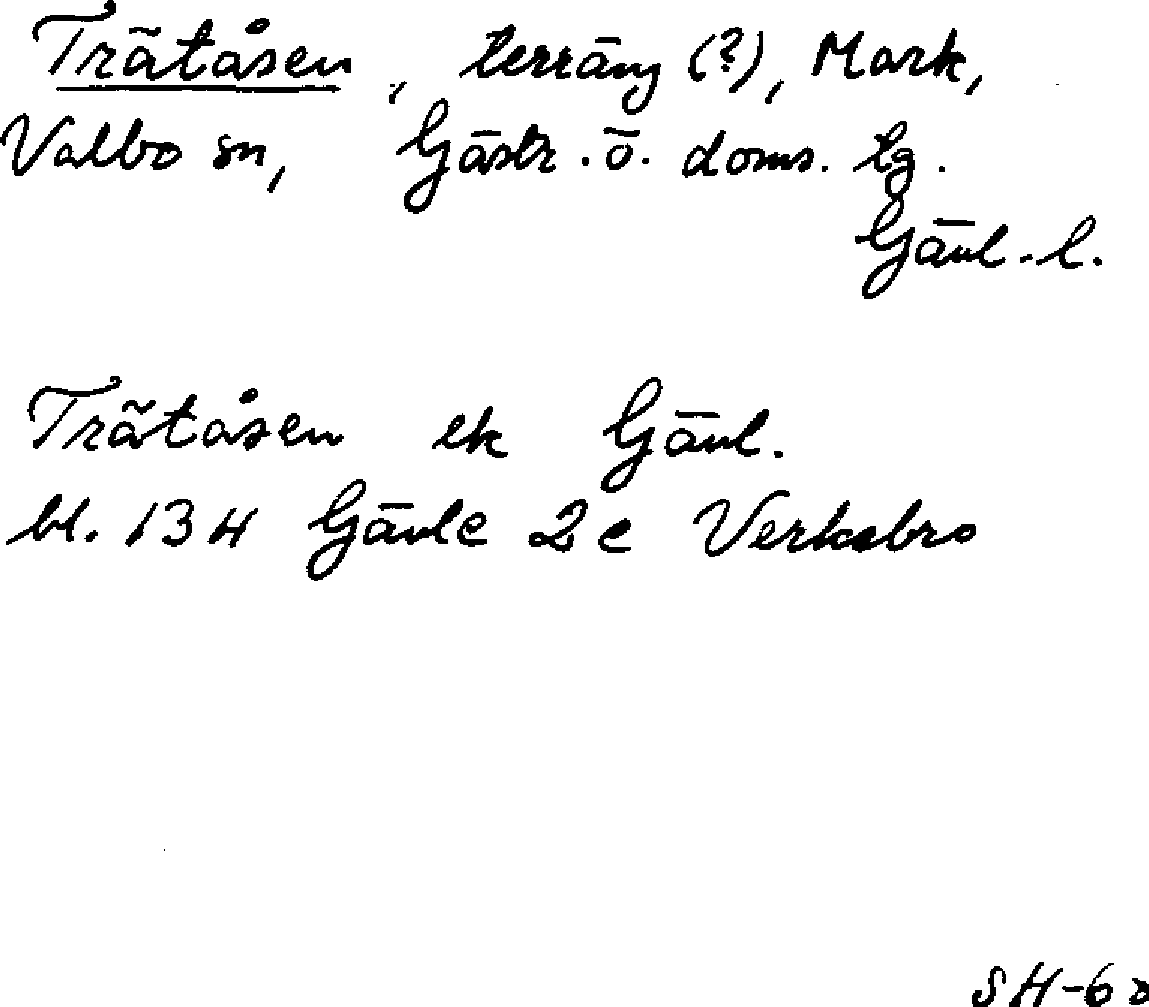 Trätåsen, terräng (?), Mark,
Valbo sn, Gästr. ö. doms. tg.
Gävl. l.
Trätåsen ek Gävl.
bl. 13 H Gävle 2 c Verkebro
SH-68